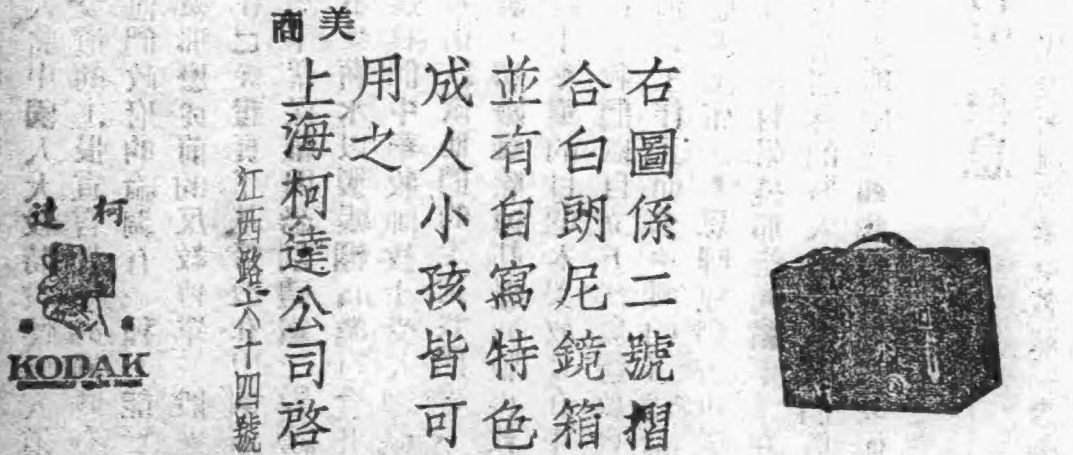 右圖係二號摺
合白朗尼鏡箱
並有自寫特色
成人小孩皆可
用之
美商
上海柯達公司啓
江西路六十四號
柯達
KODAK